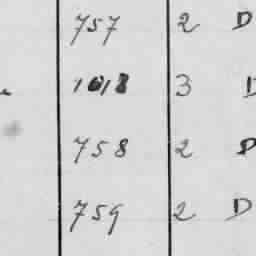 757 2 D
1018 3 D
758 2 D
759 2 D